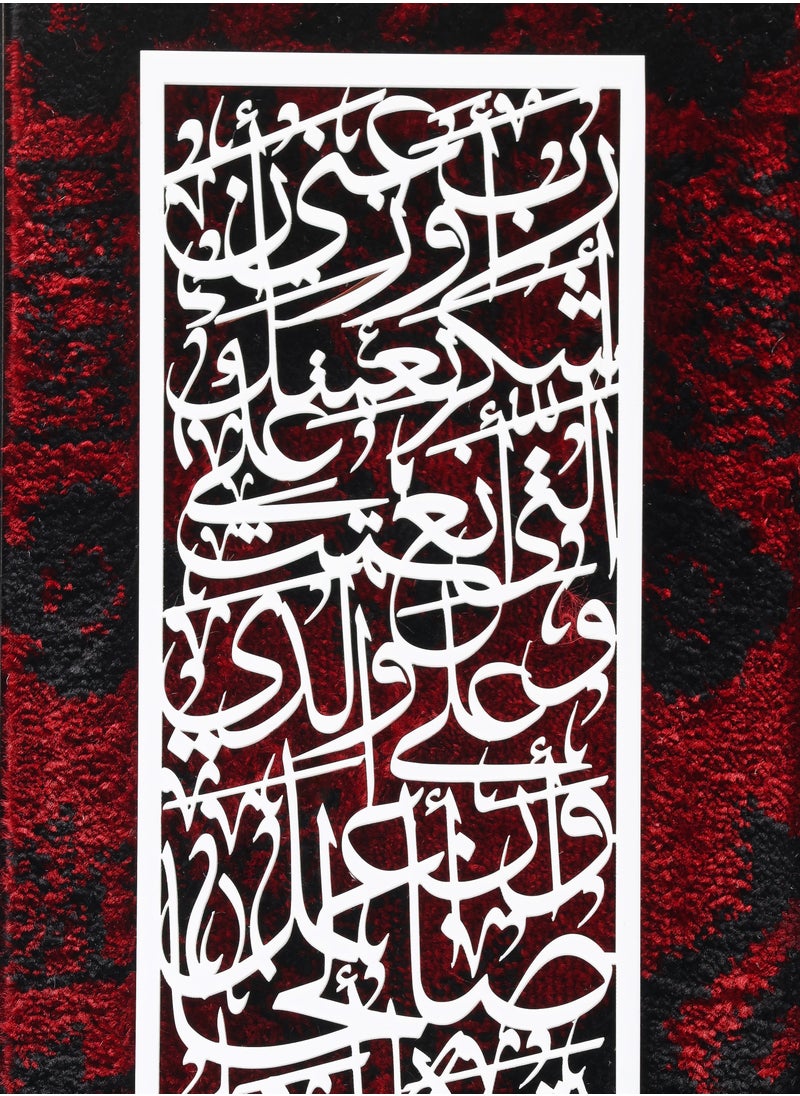 رب أوزعني أن
أشكر نعمتك
التي أنعمت علي
وعلى والدي
وأن أعمل
صالحا